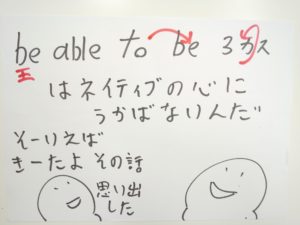 be able to be 3カス
王
はネイティブの心に
うかばないんだ
そーいえば
きーたよ その話
思い出
した